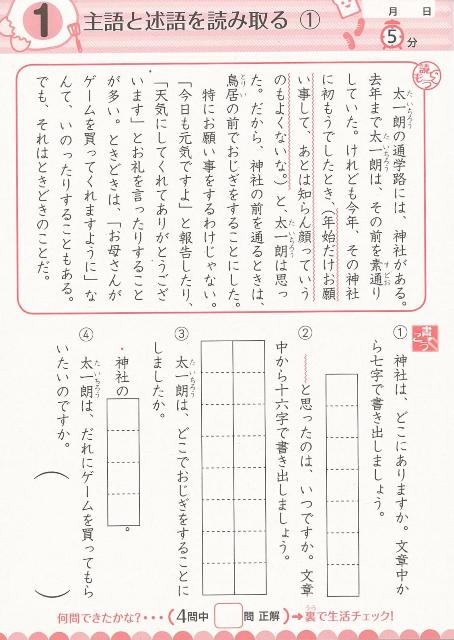 1
主語と述語を読み取る ①
月 日
5分
読もう
太一朗の通学路には、神社がある。
去年まで太一朗は、その前を素通り
していた。けれども今年、その神社
に初もうでしたとき、(年始だけお願
い事して、あとは知らん顔っていう
のもよくないな。)と、太一朗は思っ
た。だから、神社の前を通るときは、
鳥居の前でおじぎをすることにした。
特にお願い事をするわけじゃない。
「今日も元気ですよ」と報告したり、
「天気にしてくれてありがとうござ
います」とお礼を言ったりすること
が多い。ときどきは、「お母さんが
ゲームを買ってくれますように」な
んて、いのったりすることもある。
でも、それはときどきのことだ。
書こう
① 神社は、どこにありますか。文章中か
ら七字で書き出しましょう。
② と思ったのは、いつですか。文章
中から十六字で書き出しましょう。
③ 太一朗は、どこでおじぎをすることに
しましたか。
神社の 。
④ 太一朗は、だれにゲームを買ってもら
いたいのですか。
( )
何問できたかな?・・・(4問中 問 正解)→裏で生活チェック!